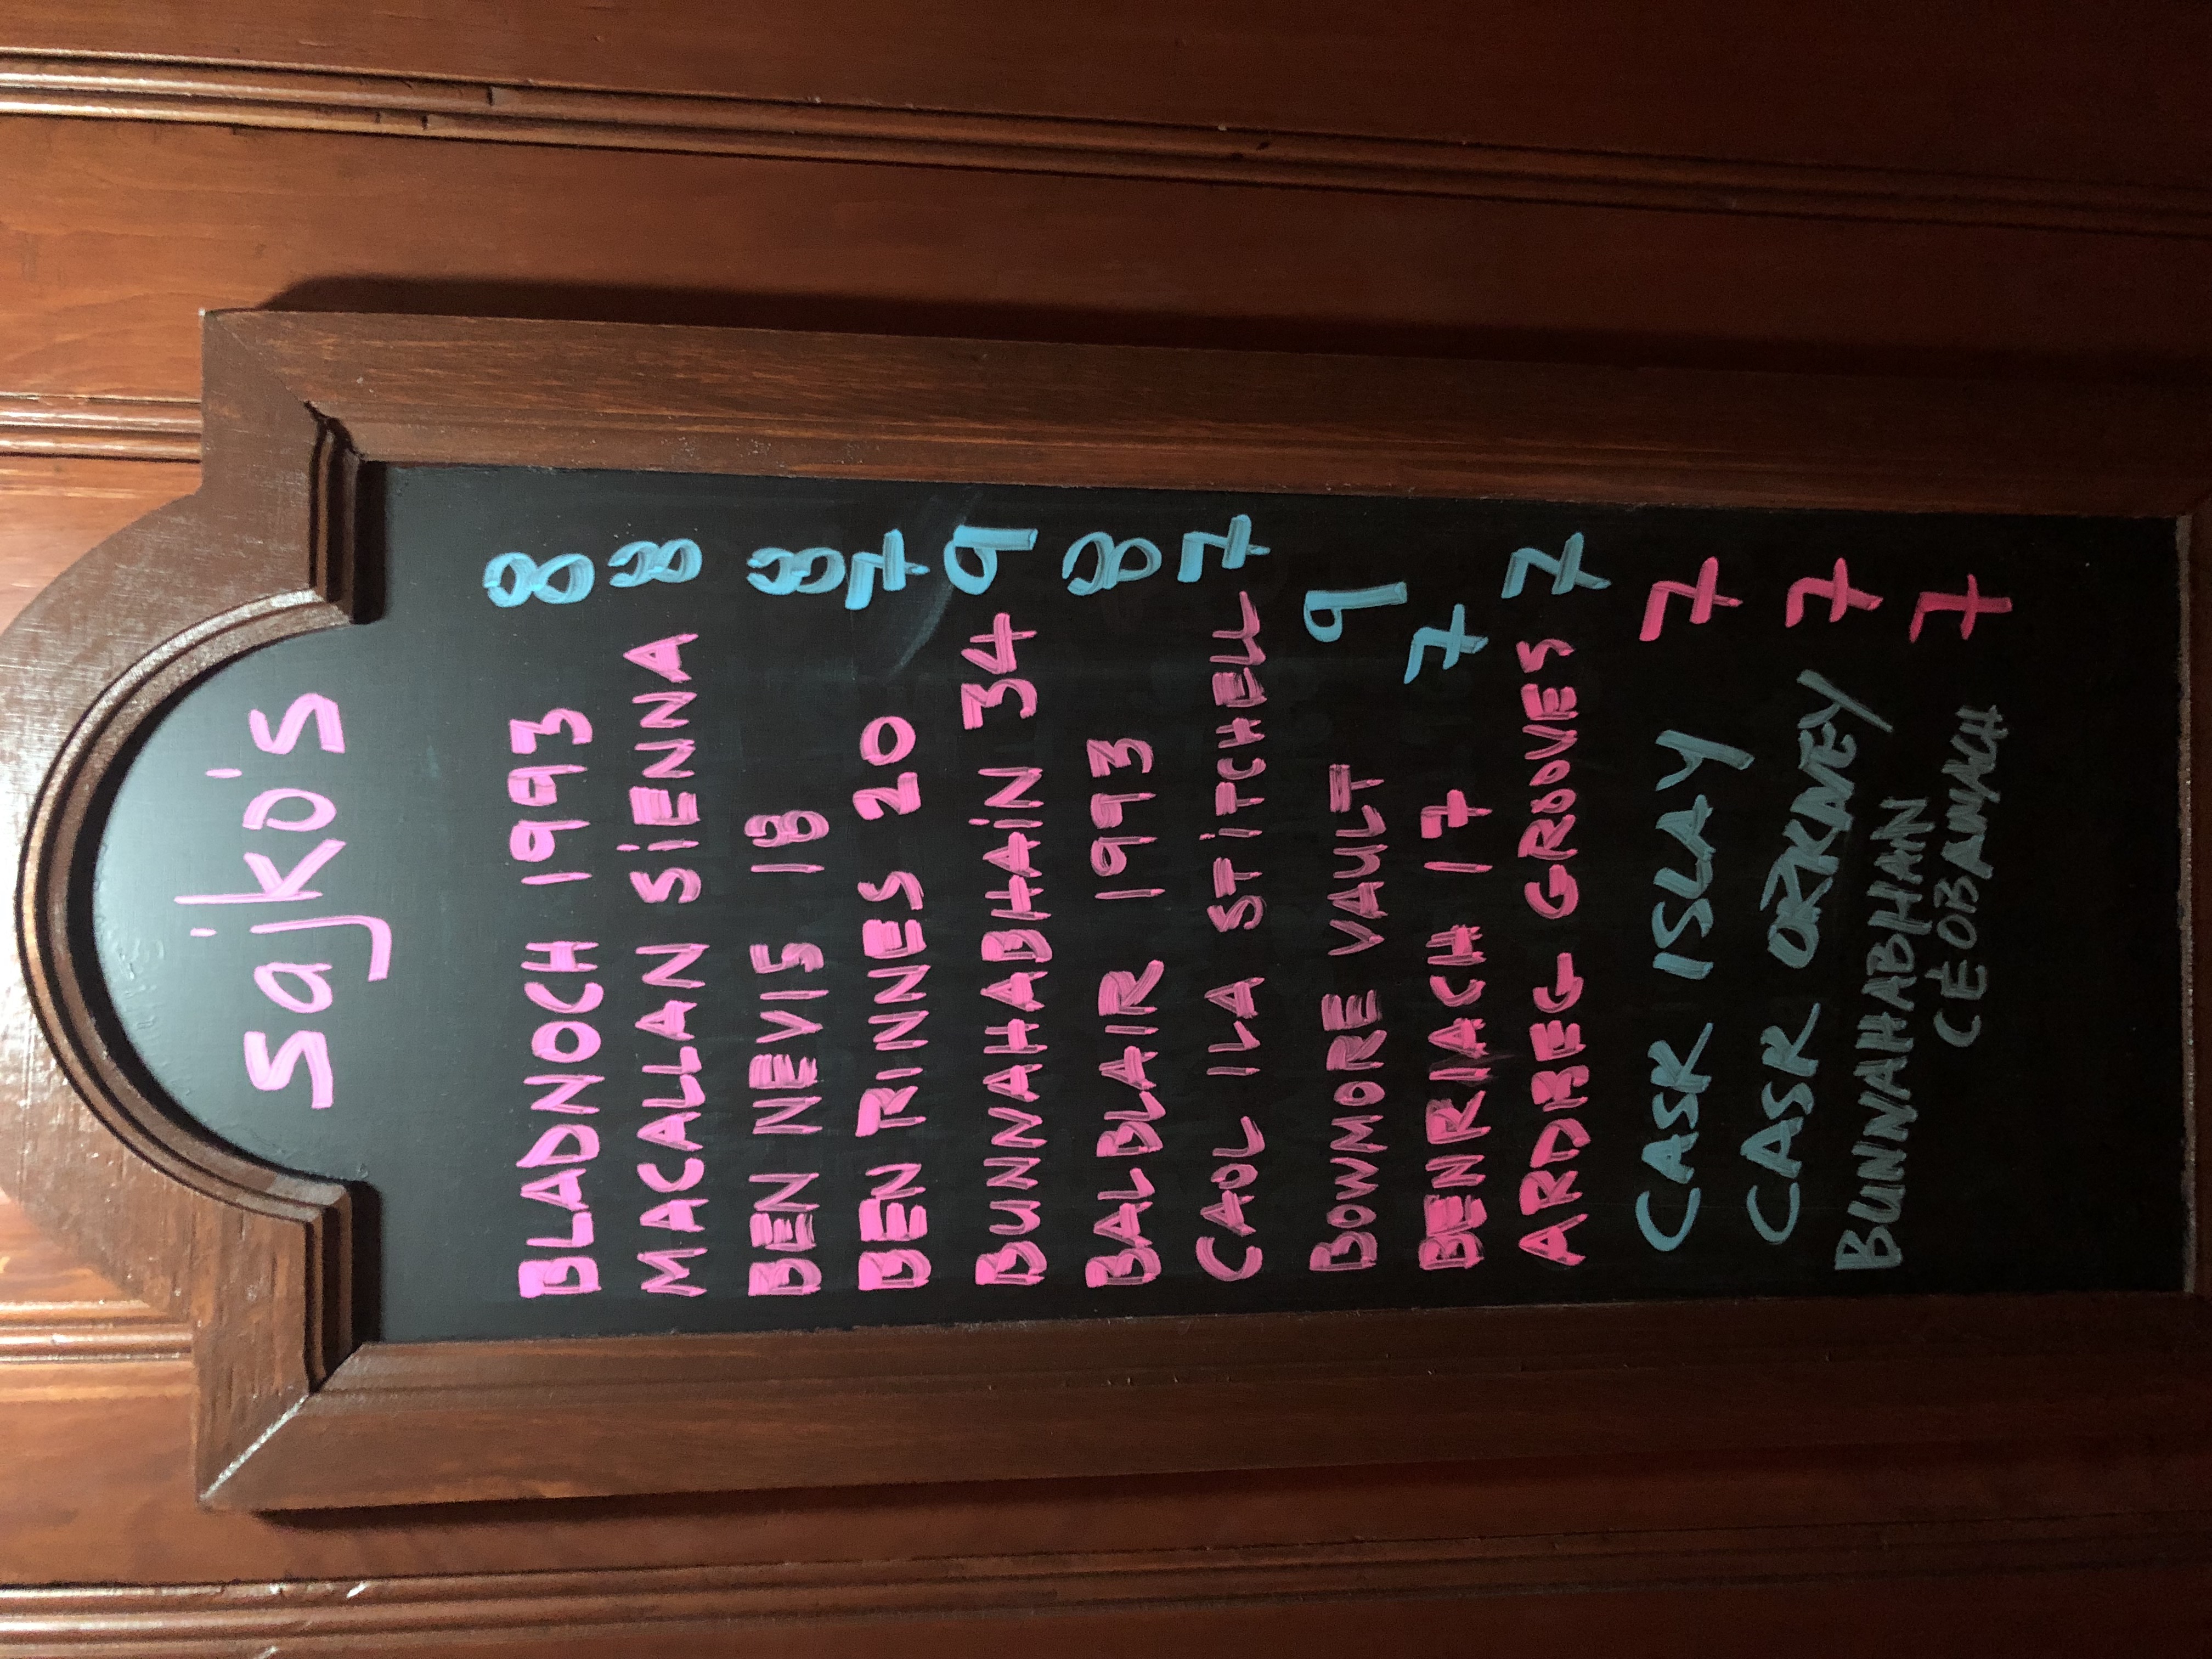 sajko's
BLADNOCH 1993 8
MACALLAN SiENNA 8
BEN NEVIS 18 8
BEN RINNES 20 7
BUNNAHABHAiN 34 9
BALBLAIR 1993 8
CAOL ILA STiTCHELL 7
BOWMORE VAULT 9
BENRIACH 17 7
ARDBEG GROOVES 7
CASK ISLAY 7
CASK ORKNEY 7
BUNNAHABHAN 7
CEOBANACH